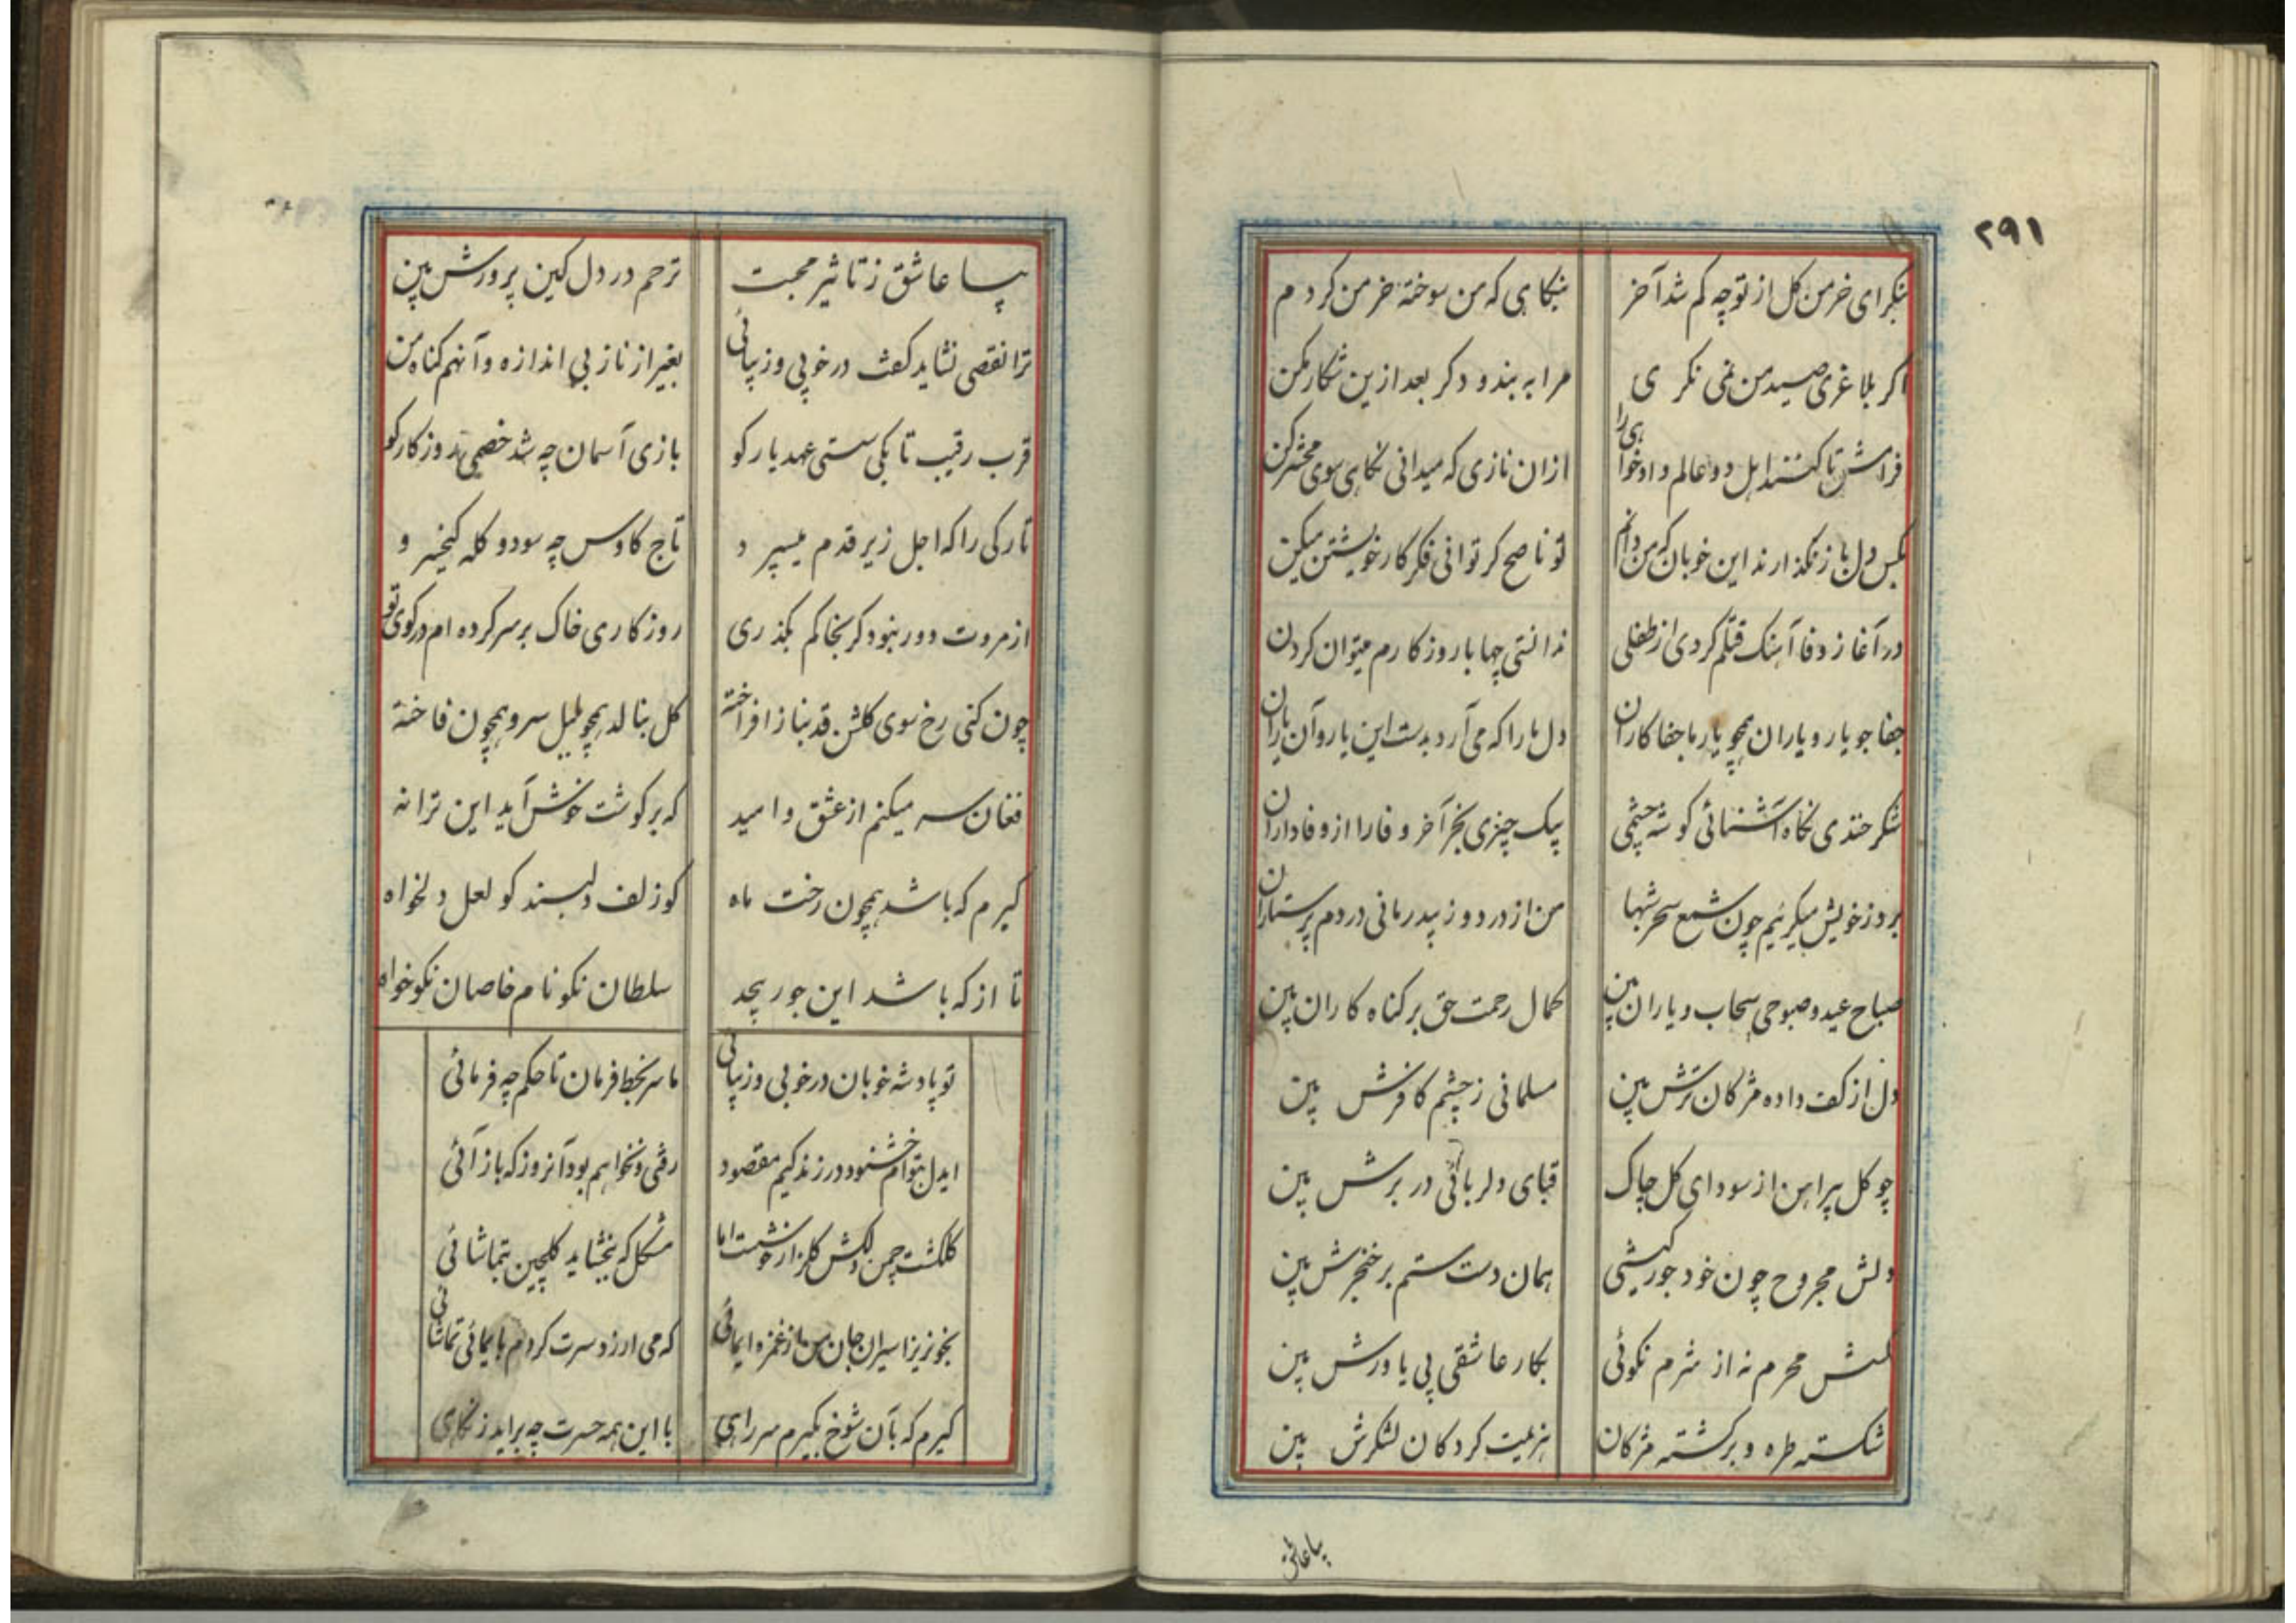 ۲۹۱
بنگر ای خرمن کل از تو چه کم شد آخر
بنکاهی که من سوختهٔ خرمن کردم
اکر بلاغری صید من نمی نکری
مرا به بند و دکر بعد ازین شکار مکن
فرامش تا کنند اهل دو عالم دادخواهی را
ازان نازی که میدانی نکاهی سوی محشر کن
بکس دل باز نکذارند این خوبان که من دانم
تو ناصح کر توانی فکر کار خویشتن میکن
در آغاز وفا آهنک قتلم کردی از طفلی
ندانستی چها با روزکارم میتوان کردن
جفا جو یار و یاران همچو یار ما جفاکاران
دل ما را که می آرد بدست این یار و آن یاران
شکر خندی نکاه آشنائی کوشه چشمی
بیک چیزی بخر آخر وفا را از وفاداران
بروز خویش میکریم چون شمع سحر شبها
من از درد و ز بیدرمانی دردم پرستاران
صباح عید و صبوحی سحاب و یاران بین
کمال رحمت حق بر کناه کاران بین
دل از کف داده مژکان ترش بین
مسلمانی ز چشم کافرش بین
چو کل پیراهن از سودای کل چاک
قبای دلربائی در برش بین
دلش مجروح چون خود جور کیشی
همان دست ستم بر خنجرش بین
کسش محرم نه از شرم نکوئی
بکار عاشقی بی یاورش بین
شکسته طره و برکشته مژکان
هزیمت کردکان لشکرش بین
بیا عاشق
بیا عاشق ز تاثیر محبت
ترحم در دل کین پرورش بین
ترا نقصی نشاید کفت در خوبی و زیبائی
بغیر از ناز بی اندازه و آنهم کناه من
قرب رقیب تا بکی سستی عهد یار کو
بازی آسمان چه شد خصمی روزکار کو
تارکی را که اجل زیر قدم میسپرد
تاج کاوس چه سود و کله کیخسرو
از مروت دور نبود کر بخاکم بکذری
روزکاری خاک بر سر کرده ام در کوی تو
چون کنی رخ سوی کلشن قد بناز افراخته
کل بنالد همچو بلبل سرو همچون فاخته
فغان سر میکنم از عشق و امید
که بر کوشت خوش آید این ترانه
کیرم که باشد همچون رخت ماه
کو زلف دلبند کو لعل دلخواه
تا از که باشد این جور بیحد
سلطان نکونام خاصان نکوخواه
تو پادشه خوبان در خوبی و زیبائی
ما سر بخط فرمان تا حکم چه فرمائی
ایدل بتوام خشنود در زندکیم مقصود
رفتی و نخواهم بود آنروز که باز آئی
کلکشت چمن دلکش کلزار خوشست اما
مشکل که ببخشاید کلچین بتماشائی
بخونریز اسیران جان من باز غمزه ایمائی
که می ارزد سرت کردم بایمائی تماشائی
کیرم که بآن شوخ بکیرم سر راهی
با این همه حسرت چه براید ز نکاهی